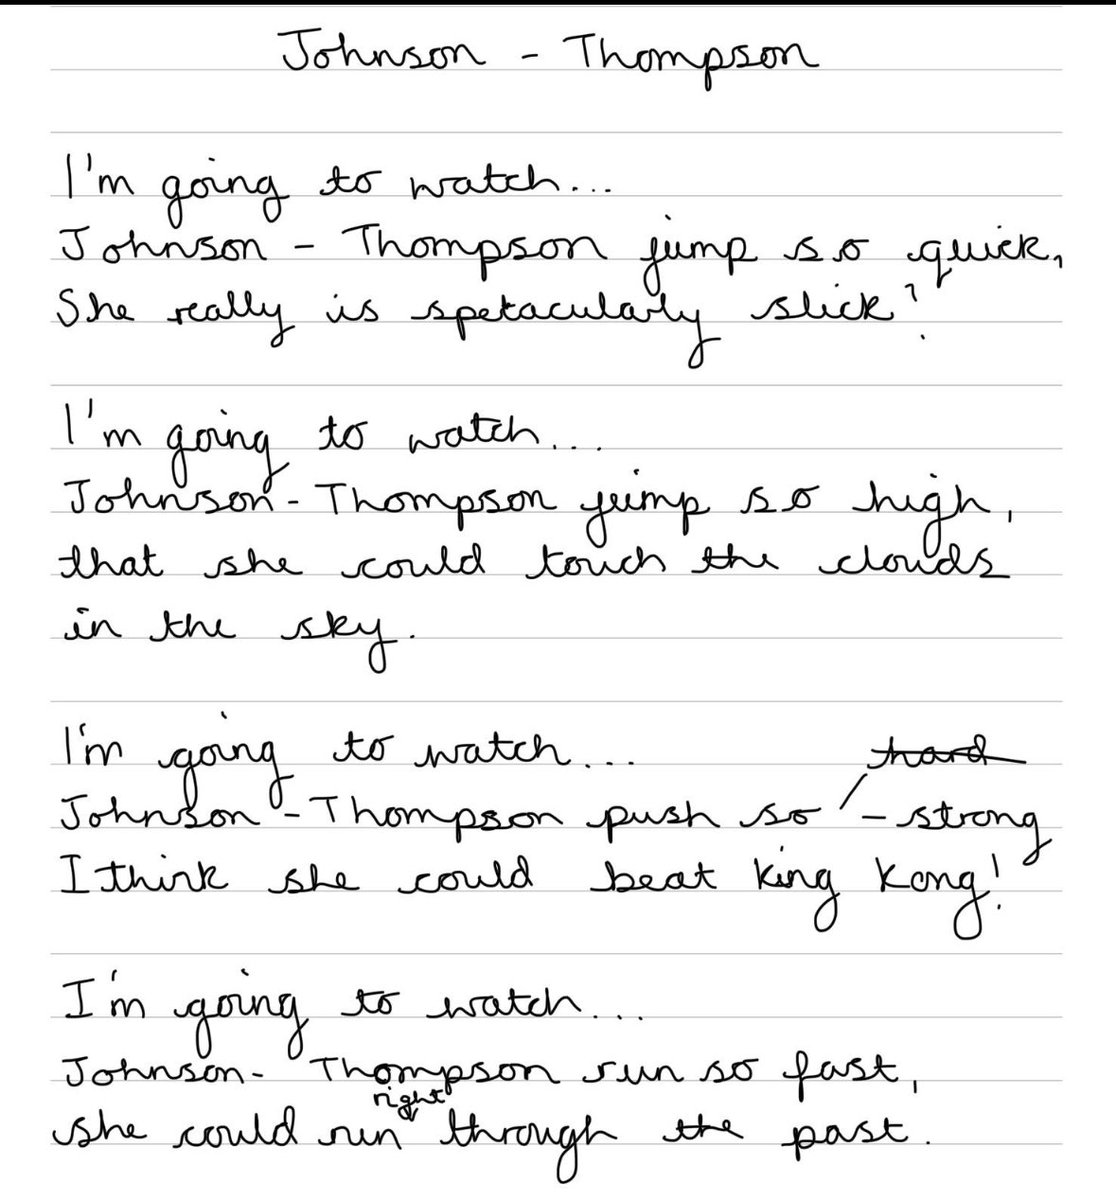 Johnson - Thompson
I'm going to watch...
Johnson - Thompson jump so quick,
She really is spetacularly slick!
I'm going to watch...
Johnson - Thompson jump so high,
that she could touch the clouds
in the sky.
I'm going to watch...
hard
Johnson - Thompson push so - strong
I think she could beat King Kong!
I'm going to watch...
Johnson - Thompson run so fast,
right
she could run through the past.